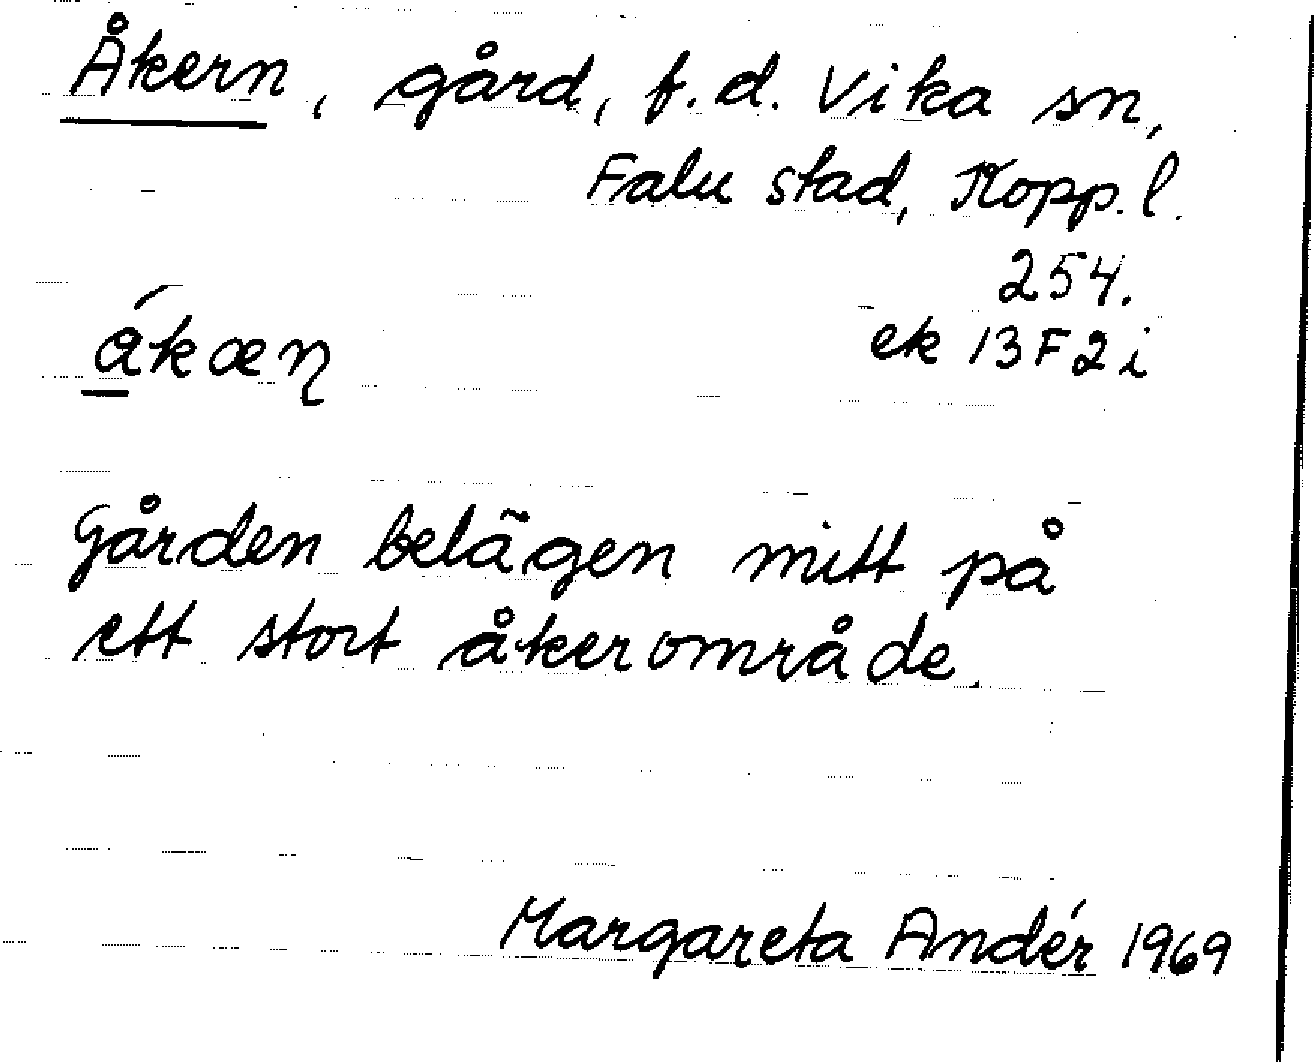 Åkern, gård, f.d. Vika sn,
Falu stad, Kopp. l.
254.
ákæɳ ek 13F2i
Gården belägen mitt på
ett stort åkerområde.
Margareta Andér 1969